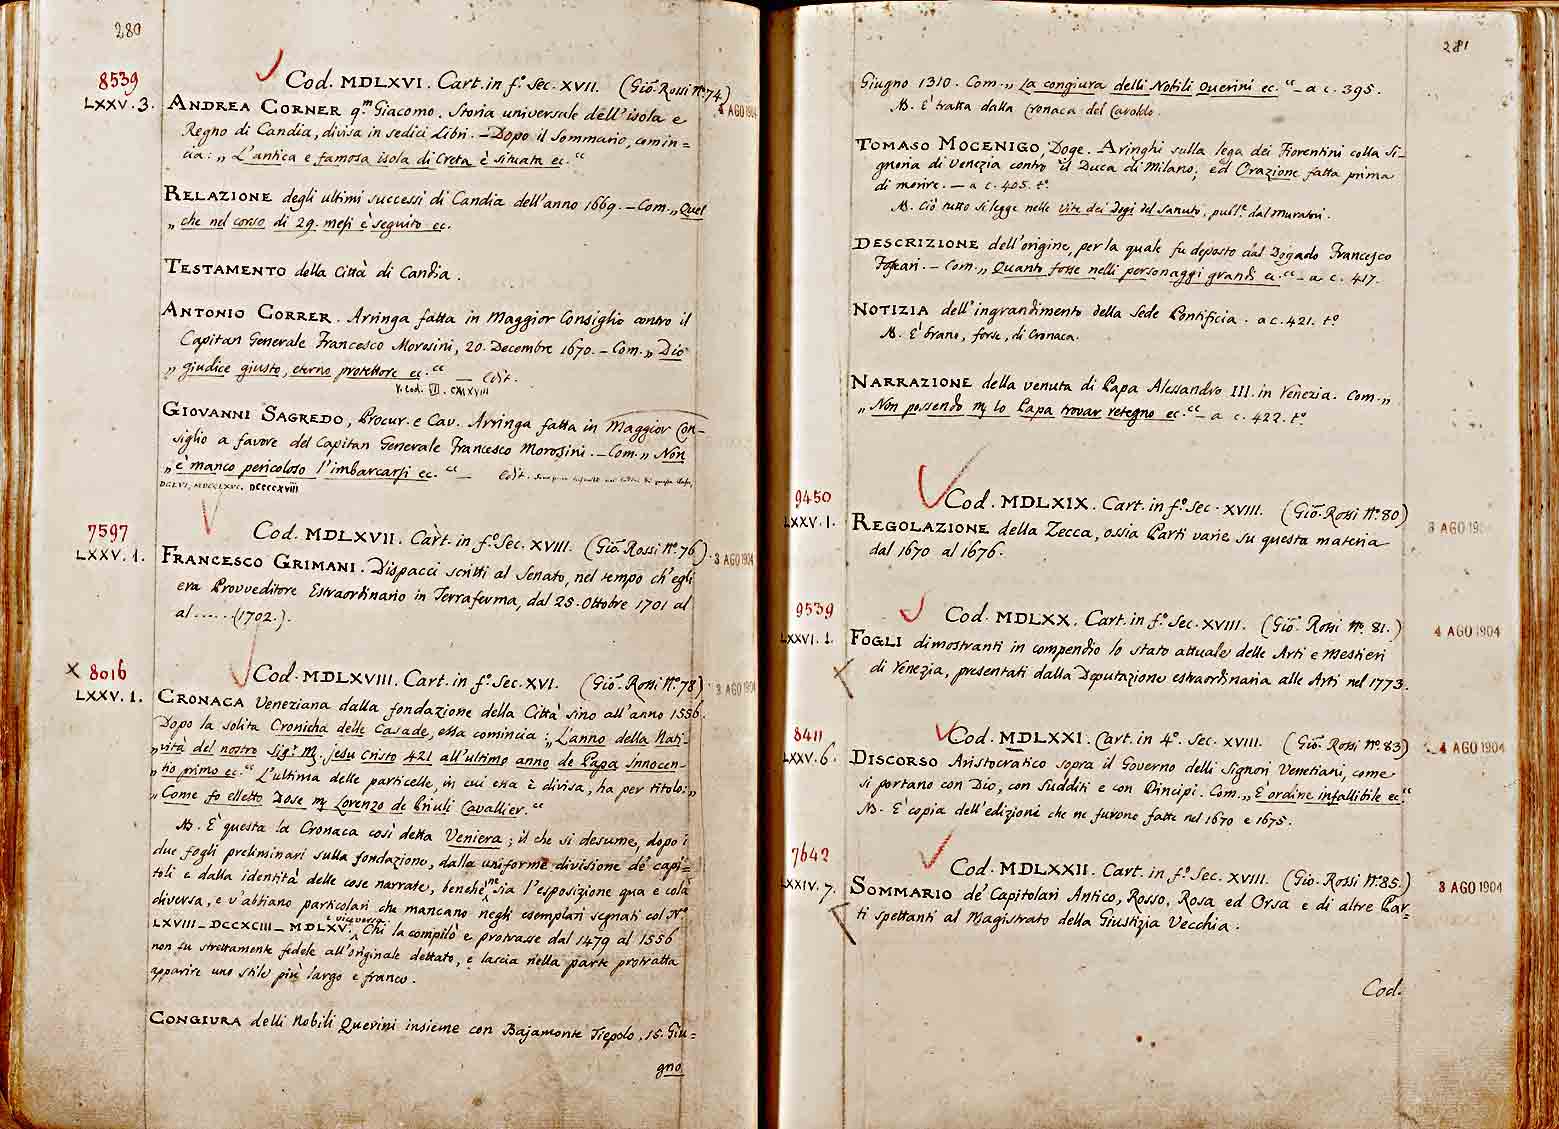 280
8539
LXXV. 3.
Cod. MDLXVI. Cart. in fº. Sec. XVII. (Gio. Rossi Nº. 74)
4 AGO 1904
ANDREA CORNER qm Giacomo. Storia universale dell'isola e
Regno di Candia, divisa in sedici Libri. – Dopo il Sommario, comin=
cia: „ L'antica e famosa isola di Creta è situata ec. “
RELAZIONE degli ultimi successi di Candia dell'anno 1669. – Com. „ Quel
„ che nel corso di 29. mesi è seguito ec.
TESTAMENTO della Città di Candia.
ANTONIO CORRER. Arringa fatta in Maggior Consiglio contro il
Capitan Generale Francesco Morosini, 20. Decembre 1670. – Com. „ Dio
„ giudice giusto, eterno protettore ec. “ – Edit.
V. Cod. VII. CMXVIII
GIOVANNI SAGREDO, Procur. e Cav. Arringa fatta in Maggior Con-
siglio a favore del Capitan Generale Francesco Morosini. – Com. „ Non
„ è manco pericoloso l'imbarcarsi ec. “ – Edit.
DCCCCXVIII
7597
LXXV. 1.
Cod. MDLXVII. Cart. in fº. Sec. XVIII. (Gio. Rossi Nº. 76).
3 AGO 1904
FRANCESCO GRIMANI. Dispacci scritti al Senato, nel tempo ch'egli
era Provveditore Estraordinario in Terraferma, dal 25. Ottobre 1701 al
al ..... (1702.).
X 8016
LXXV. 1.
Cod. MDLXVIII. Cart. in fº. Sec. XVI. (Gio. Rossi Nº. 78)
3 AGO 1904
CRONACA Veneziana dalla fondazione della Città sino all'anno 1556.
Dopo la solita Cronicha delle Casade, essa comincia: „ L'anno della Nati-
„ vità del nostro Sigr. M. Jesu Cristo 421 all'ultimo anno de Papa Innocen-
„ tio primo ec. “ L'ultima delle particelle, in cui essa è divisa, ha per titolo: „
„ Come fo elletto Dose M. Lorenzo de Priuli Cavallier. “
NB. È questa la Cronaca così detta Veniera; il che si desume, dopo i
due fogli preliminari sulla fondazione, dalla uniforme divisione de' capi=
toli e dalla identità delle cose narrate, benchè ne sia l'esposizione qua e colà
diversa, e v'abbiano particolari che mancano negli esemplari segnati col Nº.
LXVIII – DCCXCIII – MDLXV. e viceversa. Chi la compilò e protrasse dal 1479 al 1556
non fu strettamente fedele all'originale dettato, e lascia nella parte protratta
apparire uno stile più largo e franco.
CONGIURA delli Nobili Querini insieme con Bajamonte Tiepolo. 15. Giu=
gno
281
Giugno 1310. Com. „ La congiura delli Nobili Querini ec. “ – a c. 395.
NB. È tratta dalla Cronaca del Caroldo.
TOMASO MOCENIGO, Doge. Aringhi sulla lega dei Fiorentini colla Si-
gnoria di Venezia contro il Duca di Milano; ed Orazione fatta prima
di morire. – a c. 405. tº.
NB. Ciò tutto si legge nelle vite dei Dogi del Sanuto, publ.e dal Muratori.
DESCRIZIONE dell'origine, per la quale fu deposto dal Dogado Francesco
Foscari. – Com. „ Quanto fosse nelli personaggi grandi ec. “ – a c. 417.
NOTIZIA dell'ingrandimento della Sede Pontificia. a c. 421. tº.
NB. È brano, forse, di Cronaca.
NARRAZIONE della venuta di Papa Alessandro III. in Venezia. Com. „
„ Non possendo m. lo Papa trovar retegno ec. “ – a c. 422. tº.
9450
LXXV. 1.
Cod. MDLXIX. Cart. in fº. Sec. XVIII. (Gio. Rossi Nº. 80)
3 AGO 1904
REGOLAZIONE della Zecca, ossia Parti varie su questa materia
dal 1670 al 1676.
9539
LXXVI. 1.
Cod. MDLXX. Cart. in fº. Sec. XVIII. (Gio. Rossi Nº. 81.)
4 AGO 1904
FOGLI dimostranti in compendio lo stato attuale delle Arti e Mestieri
di Venezia, presentati dalla Deputazione estraordinaria alle Arti nel 1773.
8411
LXXV. 6.
Cod. MDLXXI. Cart. in 4º. Sec. XVIII. (Gio. Rossi Nº. 83)
4 AGO 1904
DISCORSO Aristocratico sopra il Governo delli Signori Venetiani, come
si portano con Dio, con Sudditi e con Principi. Com. „ È ordine infallibile ec. “
NB. È copia dell'edizioni che ne furono fatte nel 1670 e 1675.
7642
LXXIV. 7.
Cod. MDLXXII. Cart. in fº. Sec. XVIII. (Gio. Rossi Nº. 85.)
3 AGO 1904
SOMMARIO de' Capitolari Antico, Rosso, Rosa ed Orsa e di altre Par=
ti spettanti al Magistrato della Giustizia Vecchia.
Cod.